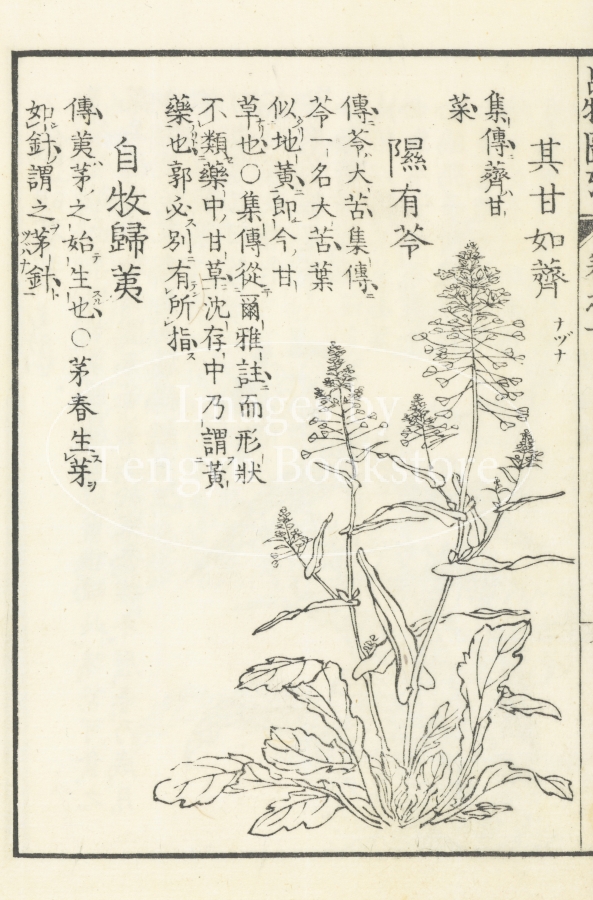 其甘如薺 ナヅナ
集傳薺甘
菜
隰有苓
傳苓大苦集傳
苓一名大苦葉
似地黃即今甘
草也○集傳從爾雅註而形狀
不類藥中甘草沈存中乃謂黃
藥也郭必別有所指
自牧歸荑
傳荑茅之始生也○茅春生芽
如針謂之茅針 ツバナ
Images by
Tengu Bookstore